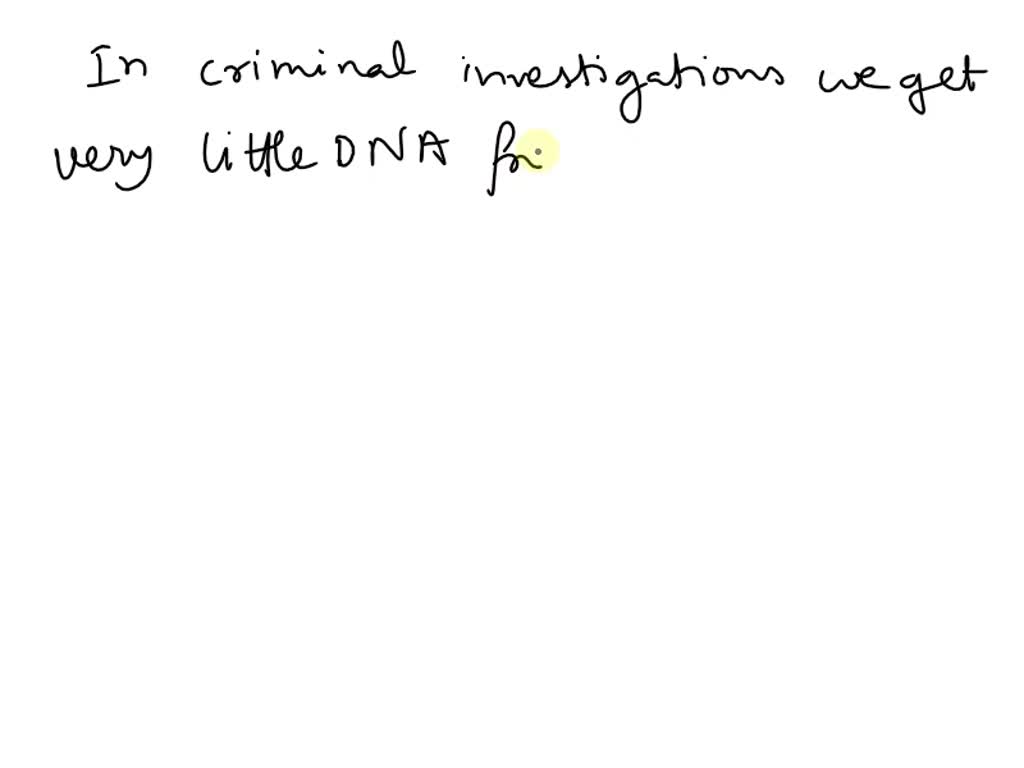 In criminal investigations we get
very little DNA